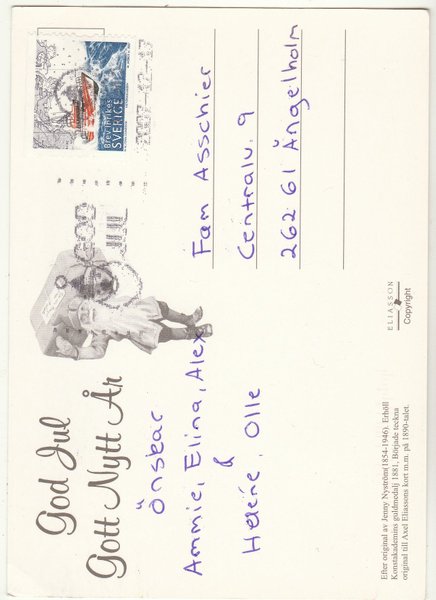 God Jul
Gott Nytt År
Önskar
Ammie, Elina, Alex
&
Heléne, Olle
Brev inrikes
SVERIGE
GOD
JUL
Fam Asschier
Centralv. 9
262 61 Ängelholm
ELIASSON
Copyright
Efter original av Jenny Nyström(1854-1946). Erhöll
Konstakademins goldmedalj 1881, Började teckna
original till Axel Eliassons kort m.m. på 1890-talet.